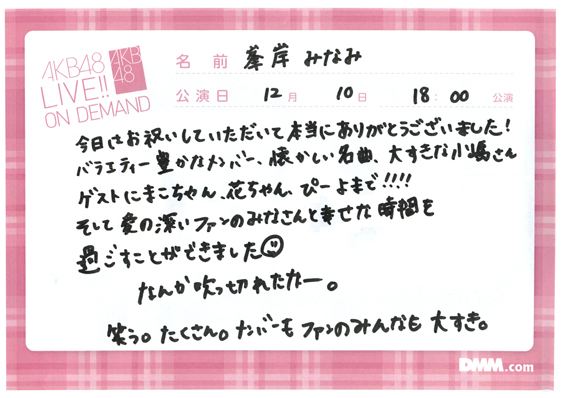 AKB48
LIVE!!
ON DEMAND
AKB
48
名前 峯岸 みなみ
公演日 12月 10日 18:00 公演
今日はお祝いしていただいて本当にありがとうございました!
バラエティー豊かなメンバー、懐かしい名曲、大すきな小嶋さん
ゲストにまこちゃん、花ちゃん、ぴーよまで!!!!
そして愛の深いファンのみなさんと幸せな時間を
過ごすことができました
なんか吹っ切れたなー。
笑う。たくさん。メンバーもファンのみんなも大すき。
DMM.com